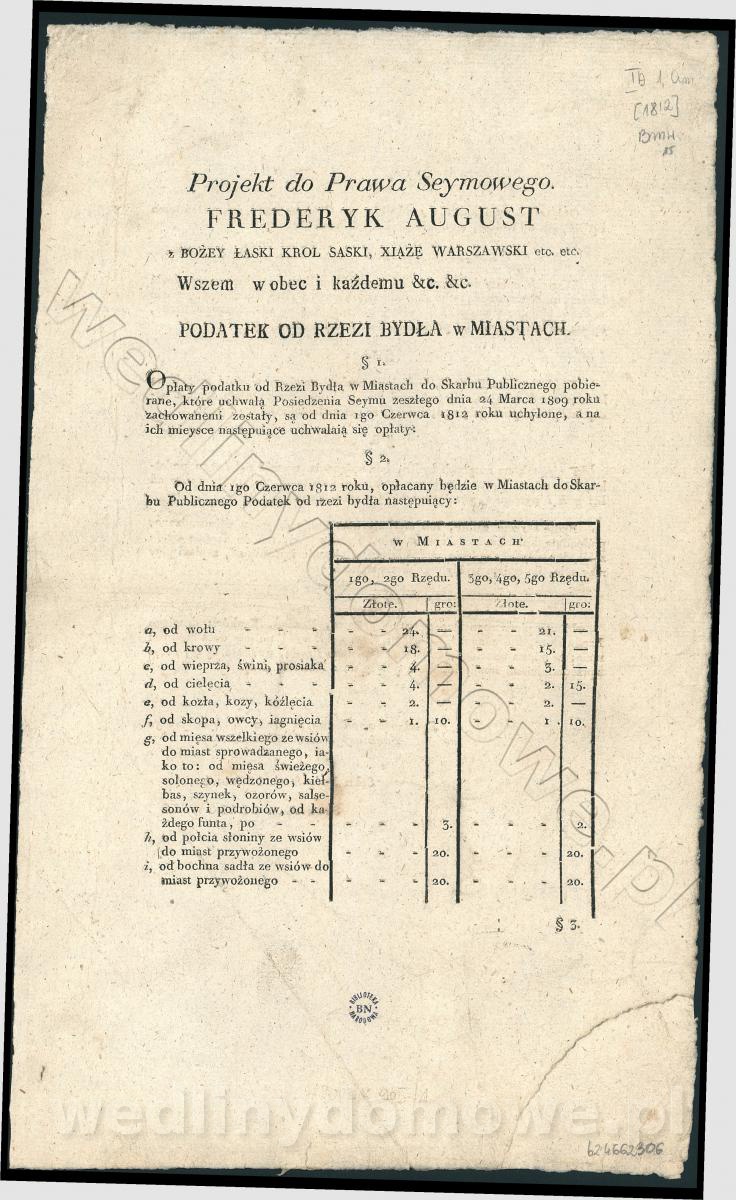 IB 1 Cim
[1812]
BmH.
Projekt do Prawa Seymowego.
FREDERYK AUGUST
z BOŻEY ŁASKI KROL SASKI, XIĄŻĘ WARSZAWSKI etc. etc.
Wszem w obec i każdemu &c. &c.
PODATEK OD RZEZI BYDŁA w MIASTACH.
§ 1.
Opłaty podatku od Rzezi Bydła w Miastach do Skarbu Publicznego pobie-
rane, które uchwałą Posiedzenia Seymu zeszłego dnia 24 Marca 1809 roku
zachowanemi zostały, są od dnia 1go Czerwca 1812 roku uchylone, a na
ich mieysce następuiące uchwalaią się opłaty:
§ 2.
Od dnia 1go Czerwca 1812 roku, opłacany będzie w Miastach do Skar-
bu Publicznego Podatek od rzezi bydła następuiący:
w MIASTACH
1go, 2go Rzędu. 3go, 4go, 5go Rzędu.
Złote. gro: Złote. gro:
a, od wołu - - - - - - 24. — - - 21. —
b, od krowy - - - - - - 18. — - - 15. —
c, od wieprza, świni, prosiaka - - 4. — - - 3. —
d, od cielęcia - - - - - 4. — - - 2. 15.
e, od kozła, kozy, kóźlęcia - - 2. — - - 2. —
f, od skopa, owcy, iagnięcia - - 1. 10. - - 1. 10.
g, od mięsa wszelkiego ze wsiów
do miast sprowadzanego, ia-
ko to: od mięsa świeżego,
solonego, wędzonego, kieł-
bas, szynek, ozorów, salse-
sonów i podrobiów, od ka-
żdego funta, po - - - - - 3. - - - 2.
h, od połcia słoniny ze wsiów
do miast przywożonego - - - 20. - - - 20.
i, od bochna sadła ze wsiów do
miast przywożonego - - - - - 20. - - - 20.
§ 3.
BIBLIOTEKA
BN
NARODOWA
wedlinydomowe.pl
wedlinydomowe.pl
624662306